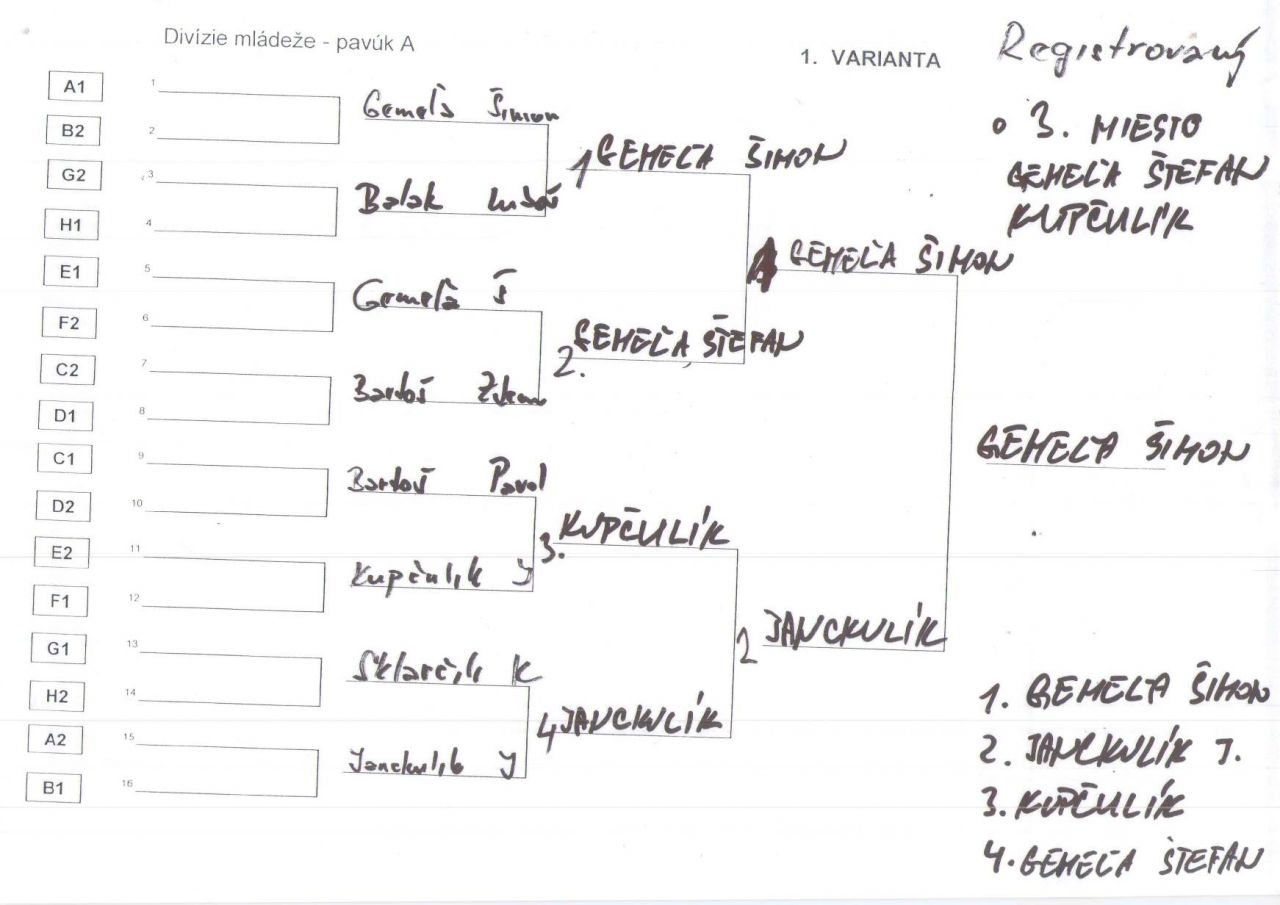 Divízie mládeže - pavúk A
1. VARIANTA
Registrovaný
A1
1
B2
2
G2
3
H1
4
E1
5
F2
6
C2
7
D1
8
C1
9
D2
10
E2
11
F1
12
G1
13
H2
14
A2
15
B1
16
Gemeľa Šimon
Balak
Gemeľa Š
Bartoš
Bartoš Pavol
Kupčulik J
Sklarčik K
Janckulik J
1 GEMEĽA ŠIMON
2. GEMEĽA ŠTEFAN
3. KUPČULÍK
4 JANCKULÍK
1 GEMEĽA ŠIMON
2 JANCKULÍK
GEMEĽA ŠIMON
o 3. MIESTO
GEMEĽA ŠTEFAN
KUPČULÍK
1. GEMEĽA ŠIMON
2. JANCKULÍK J.
3. KUPČULÍK
4. GEMEĽA ŠTEFAN